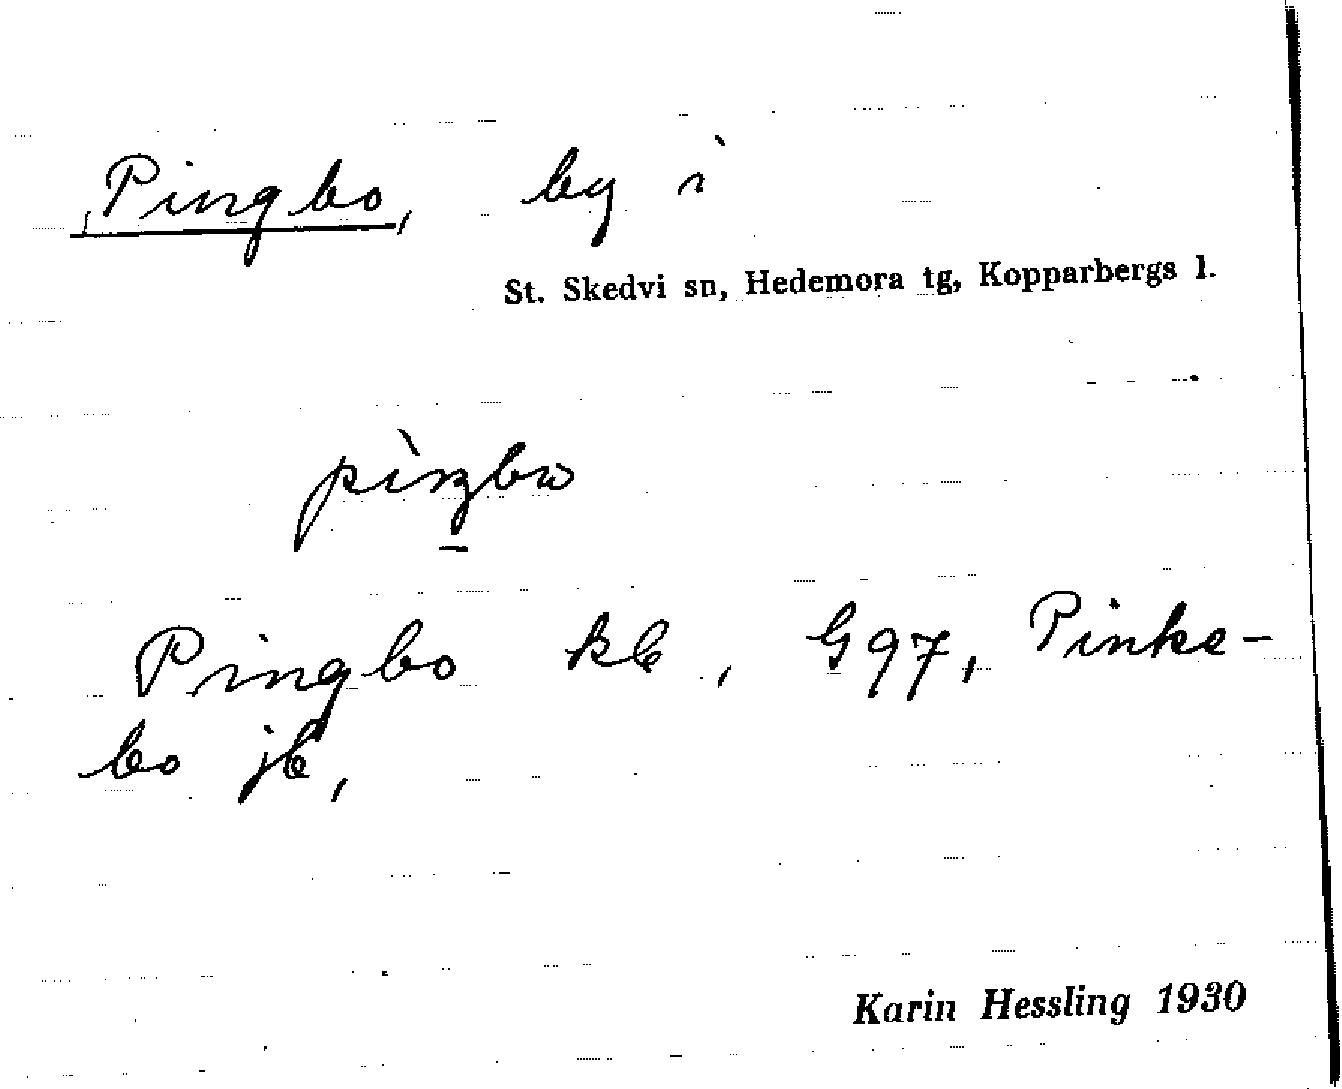 Pingbo, by i
St. Skedvi sn, Hedemora tg, Kopparbergs l.
pìŋbω
Pingbo kb, G97, Pinke-
bo jb,
Karin Hessling 1930